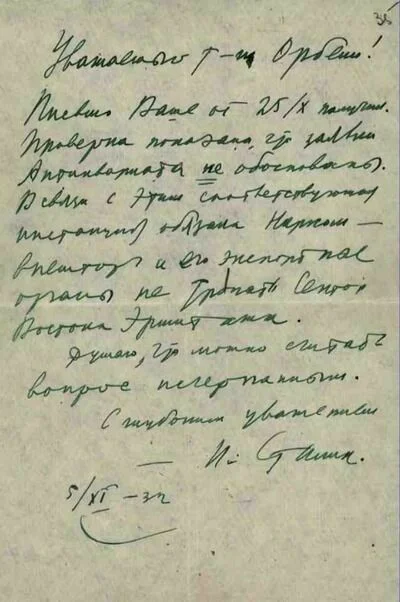 35
Уважаемый т-щ Орбели!
Письмо Ваше от 25/X получил.
Проверка показала, что заявки
Антиквариата не обоснованы.
В связи с этим соответствующая
инстанция обязала Нарком–
внешторг и его экспортные
органы не трогать сектор
Востока Эрмитажа.
Думаю, что можно считать
вопрос исчерпанным.
С глубоким уважением
– И. Сталин.
5/XI – 32